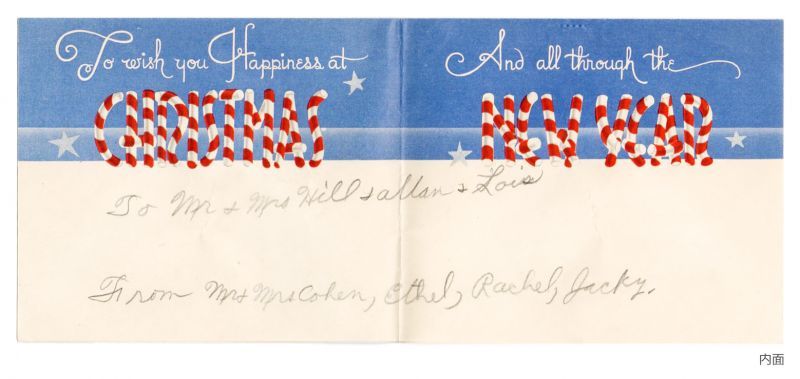 To wish you Happiness at
CHRISTMAS
And all through the
NEW YEAR
To Mr & Mrs Hill & allan & Lois
From Mr & Mrs Cohen, Ethel, Rachel, Jacky.
内面